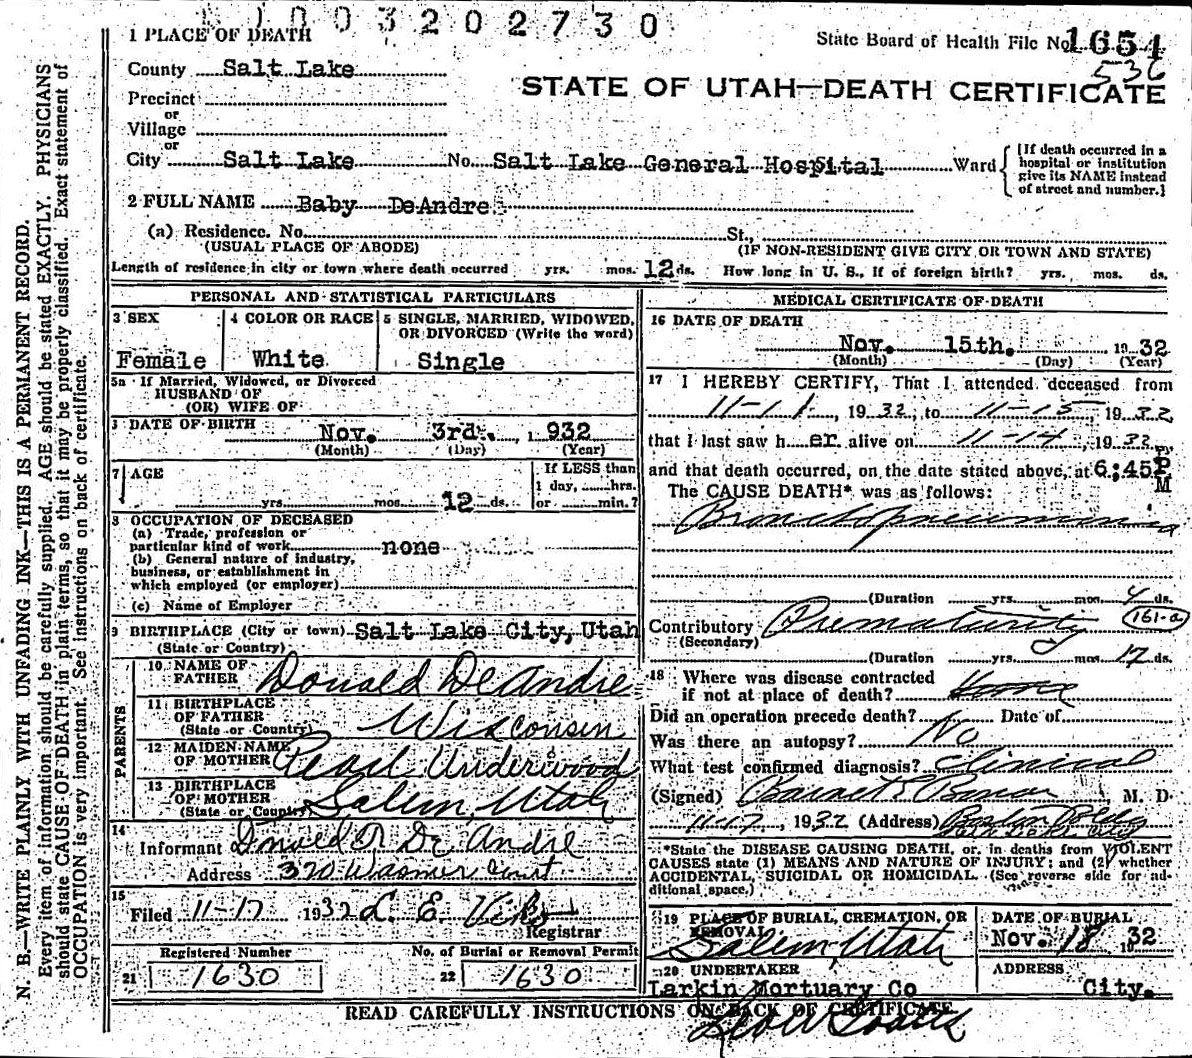 1003202730
1 PLACE OF DEATH
State Board of Health File No. 1654
536
County Salt Lake
STATE OF UTAH—DEATH CERTIFICATE
Precinct
or
Village
or
City Salt Lake No. Salt Lake General Hospital St. Ward
[If death occurred in a hospital or institution give its NAME instead of street and number.]
2 FULL NAME Baby DeAndre
(a) Residence. No. St.,
(USUAL PLACE OF ABODE) (IF NON-RESIDENT GIVE CITY OR TOWN AND STATE)
Length of residence in city or town where death occurred yrs. mos. 12 ds. How long in U. S., if of foreign birth? yrs. mos. ds.
PERSONAL AND STATISTICAL PARTICULARS
3 SEX
Female
4 COLOR OR RACE
White
5 SINGLE, MARRIED, WIDOWED, OR DIVORCED (Write the word)
Single
5a If Married, Widowed, or Divorced
HUSBAND OF
(OR) WIFE OF
DATE OF BIRTH Nov. 3rd., 1932
(Month) (Day) (Year)
7 AGE
yrs. mos. 12 ds.
If LESS than
1 day, hrs.
or min.?
8 OCCUPATION OF DECEASED
(a) Trade, profession or
particular kind of work none
(b) General nature of industry,
business, or establishment in
which employed (or employer)
(c) Name of Employer
9 BIRTHPLACE (City or town) Salt Lake City, Utah
(State or Country)
PARENTS
10 NAME OF FATHER Donald DeAndre
11 BIRTHPLACE OF FATHER Wisconsin
(State or Country)
12 MAIDEN NAME OF MOTHER Pearl Underwood
13 BIRTHPLACE OF MOTHER Salem, Utah
(State or Country)
14
Informant Donald De Andre
Address 320 Court
15
Filed 11-17 1932 L. E. Viko
Registrar
Registered Number
21 1630
No. of Burial or Removal Permit
22 1630
MEDICAL CERTIFICATE OF DEATH
16 DATE OF DEATH
Nov. 15th. 1932
(Month) (Day) (Year)
17 I HEREBY CERTIFY, That I attended deceased from
11-11, 1932, to 11-15, 1932
that I last saw her alive on 11-14, 1932
and that death occurred, on the date stated above, at 6:45 P M
The CAUSE DEATH* was as follows:
Bronchopneumonia
(Duration yrs. mos. 4 ds.
Contributory Prematurity 161-a
(Secondary)
(Duration yrs. mos. 12 ds.
18 Where was disease contracted
if not at place of death? Home
Did an operation precede death? No Date of
Was there an autopsy? No
What test confirmed diagnosis? Clinical
(Signed) M. D.
11-17, 1932 (Address) Boston Bldg
*State the DISEASE CAUSING DEATH, or, in deaths from VIOLENT
CAUSES state (1) MEANS AND NATURE OF INJURY; and (2) whether
ACCIDENTAL, SUICIDAL OR HOMICIDAL. (See reverse side for ad-
ditional space.)
19 PLACE OF BURIAL, CREMATION, OR REMOVAL
Salem, Utah
DATE OF BURIAL
Nov. 18 1932
20 UNDERTAKER
Larkin Mortuary Co
ADDRESS
City.
READ CAREFULLY INSTRUCTIONS ON BACK OF CERTIFICATE
N. B.—WRITE PLAINLY WITH UNFADING INK—THIS IS A PERMANENT RECORD.
Every item of information should be carefully supplied. AGE should be stated EXACTLY. PHYSICIANS
should state CAUSE OF DEATH in plain terms, so that it may be properly classified. Exact statement of
OCCUPATION is very important. See instructions on back of certificate.